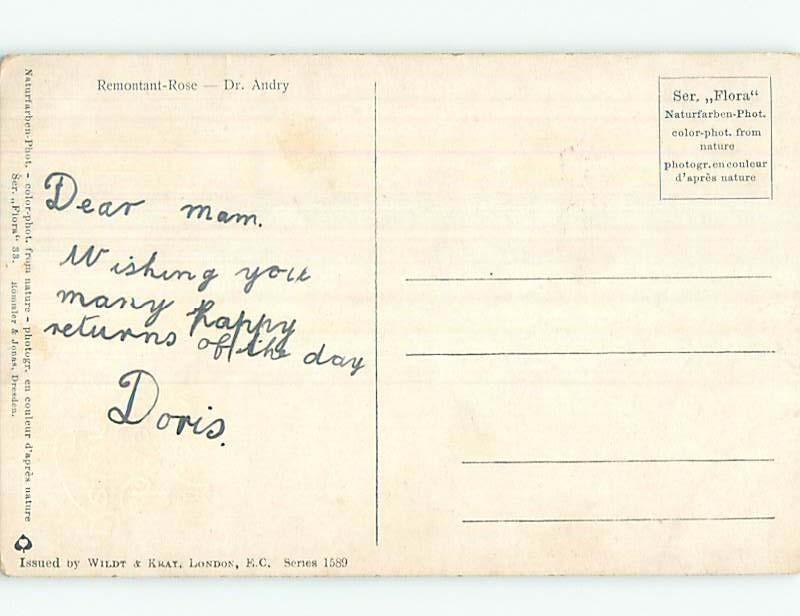 Remontant-Rose — Dr. Andry
Ser. „Flora“
Naturfarben-Phot.
color-phot. from
nature
photogr. en couleur
d'après nature
Dear mam.
Wishing you
many happy
returns of the day
Doris.
Naturfarben-Phot. - color-phot. from nature - photogr. en couleur d'après nature
Ser. „Flora“ 33. Römmler & Jonas, Dresden.
Issued by WILDT & KRAY, LONDON, E.C. Series 1589